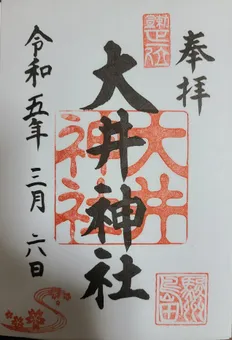 奉拝
大井神社
令和五年三月六日
大井
神社